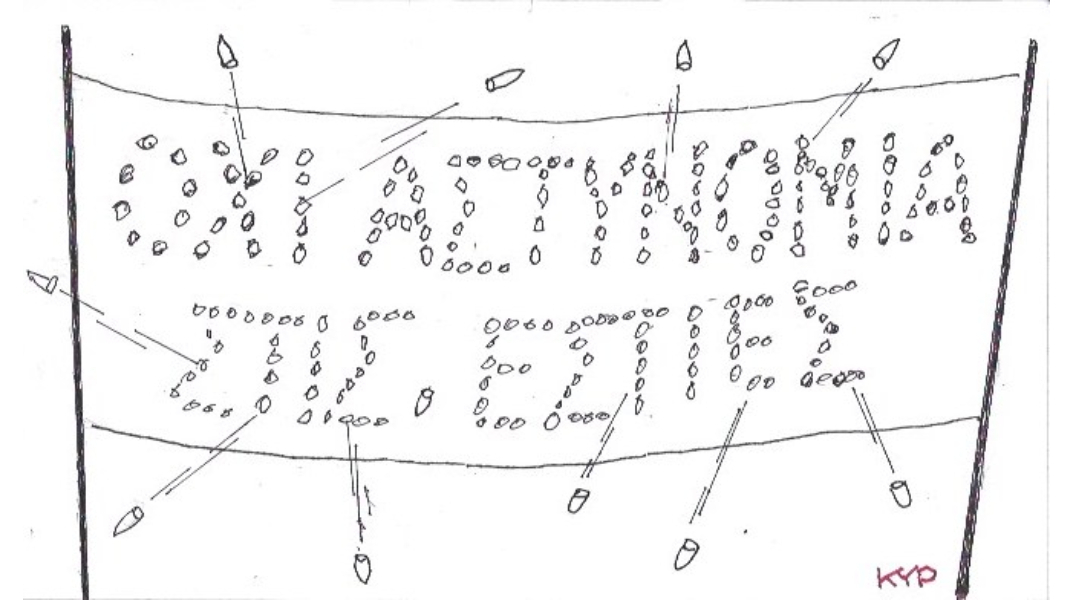 ΟΧΙ ΑΣΤΥΝΟΜΙΑ
ΣΤΙΣ ΕΣΤΙΕΣ
ΚΥΡ